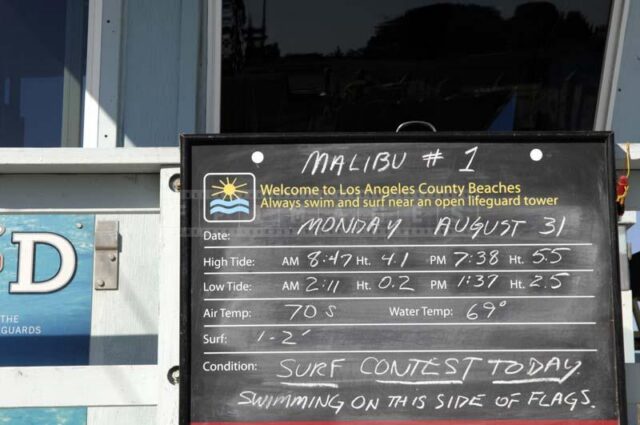 MALIBU # 1
Welcome to Los Angeles County Beaches
Always swim and surf near an open lifeguard tower
Date: MONDAY AUGUST 31
High Tide: AM 8:47 Ht. 4.1 PM 7:38 Ht. 5.5
Low Tide: AM 2:11 Ht. 0.2 PM 1:37 Ht. 2.5
Air Temp: 70s Water Temp: 69°
Surf: 1-2'
Condition: SURF CONTEST TODAY.
SWIMMING ON THIS SIDE OF FLAGS.
D
THE
GUARDS